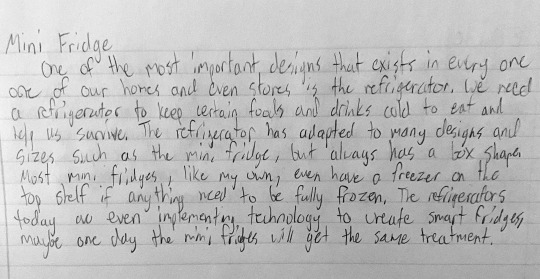 Mini Fridge
One of the most important designs that exists in every one
one of our homes and even stores is the refrigerator. We need
a refrigerator to keep certain foods and drinks cold to eat and
help us survive. The refrigerator has adapted to many designs and
sizes such as the mini fridge, but always has a box shape.
Most mini fridges, like my own, even have a freezer on the
top shelf if anything need to be fully frozen. The refrigerators
today are even implementing technology to create smart fridges,
maybe one day the mini fridges will get the same treatment.